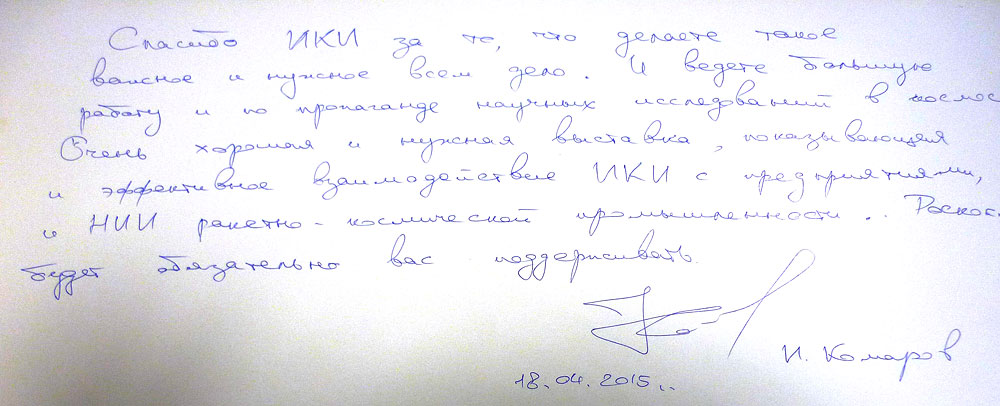 Спасибо ИКИ за то, что делаете такое
важное и нужное всем дело. И ведете большую
работу и по пропаганде научных исследований в космос
Очень хорошая и нужная выставка, показывающая
и эффективное взаимодействие ИКИ с предприятиями,
и НИИ ракетно-космической промышленности.. Роскос
будет обязательно вас поддерживать.
И. Комаров
18.04.2015..